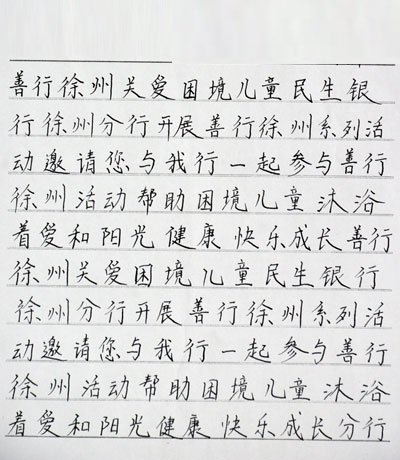 善行徐州关爱困境儿童民生银
行徐州分行开展善行徐州系列活
动邀请您与我行一起参与善行
徐州活动帮助困境儿童沐浴
着爱和阳光健康快乐成长善行
徐州关爱困境儿童民生银行
徐州分行开展善行徐州系列活
动邀请您与我行一起参与善行
徐州活动帮助困境儿童沐浴
着爱和阳光健康快乐成长分行